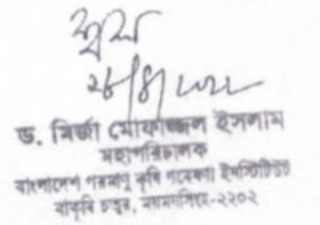 ২৮/৪/২০২২
ড. মির্জা মোফাজ্জল ইসলাম
মহাপরিচালক
বাংলাদেশ পরমাণু কৃষি গবেষণা ইনস্টিটিউট
বাকৃবি চত্বর, ময়মনসিংহ-২২০২